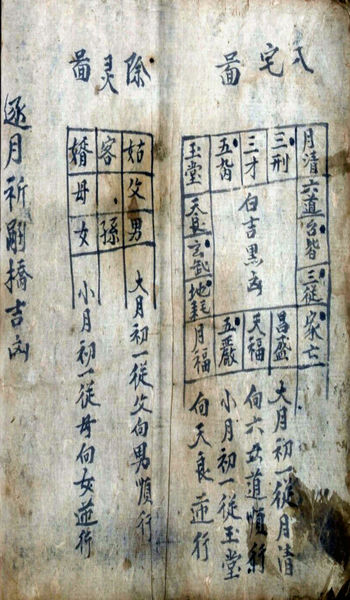 入宅啚
月清 六道 三從 家亡
三刑 昌盛
三才 天福
五嚴
玉堂 玄武 地耗 月福
白吉黑凶
大月初一從月清
向六道順行
小月初一從玉堂
向天良逆行
除灵啚
姑父男
客孫
母女
大月初一從父向男順行
小月初一從母向女逆行
逐月祈嗣橋吉凶